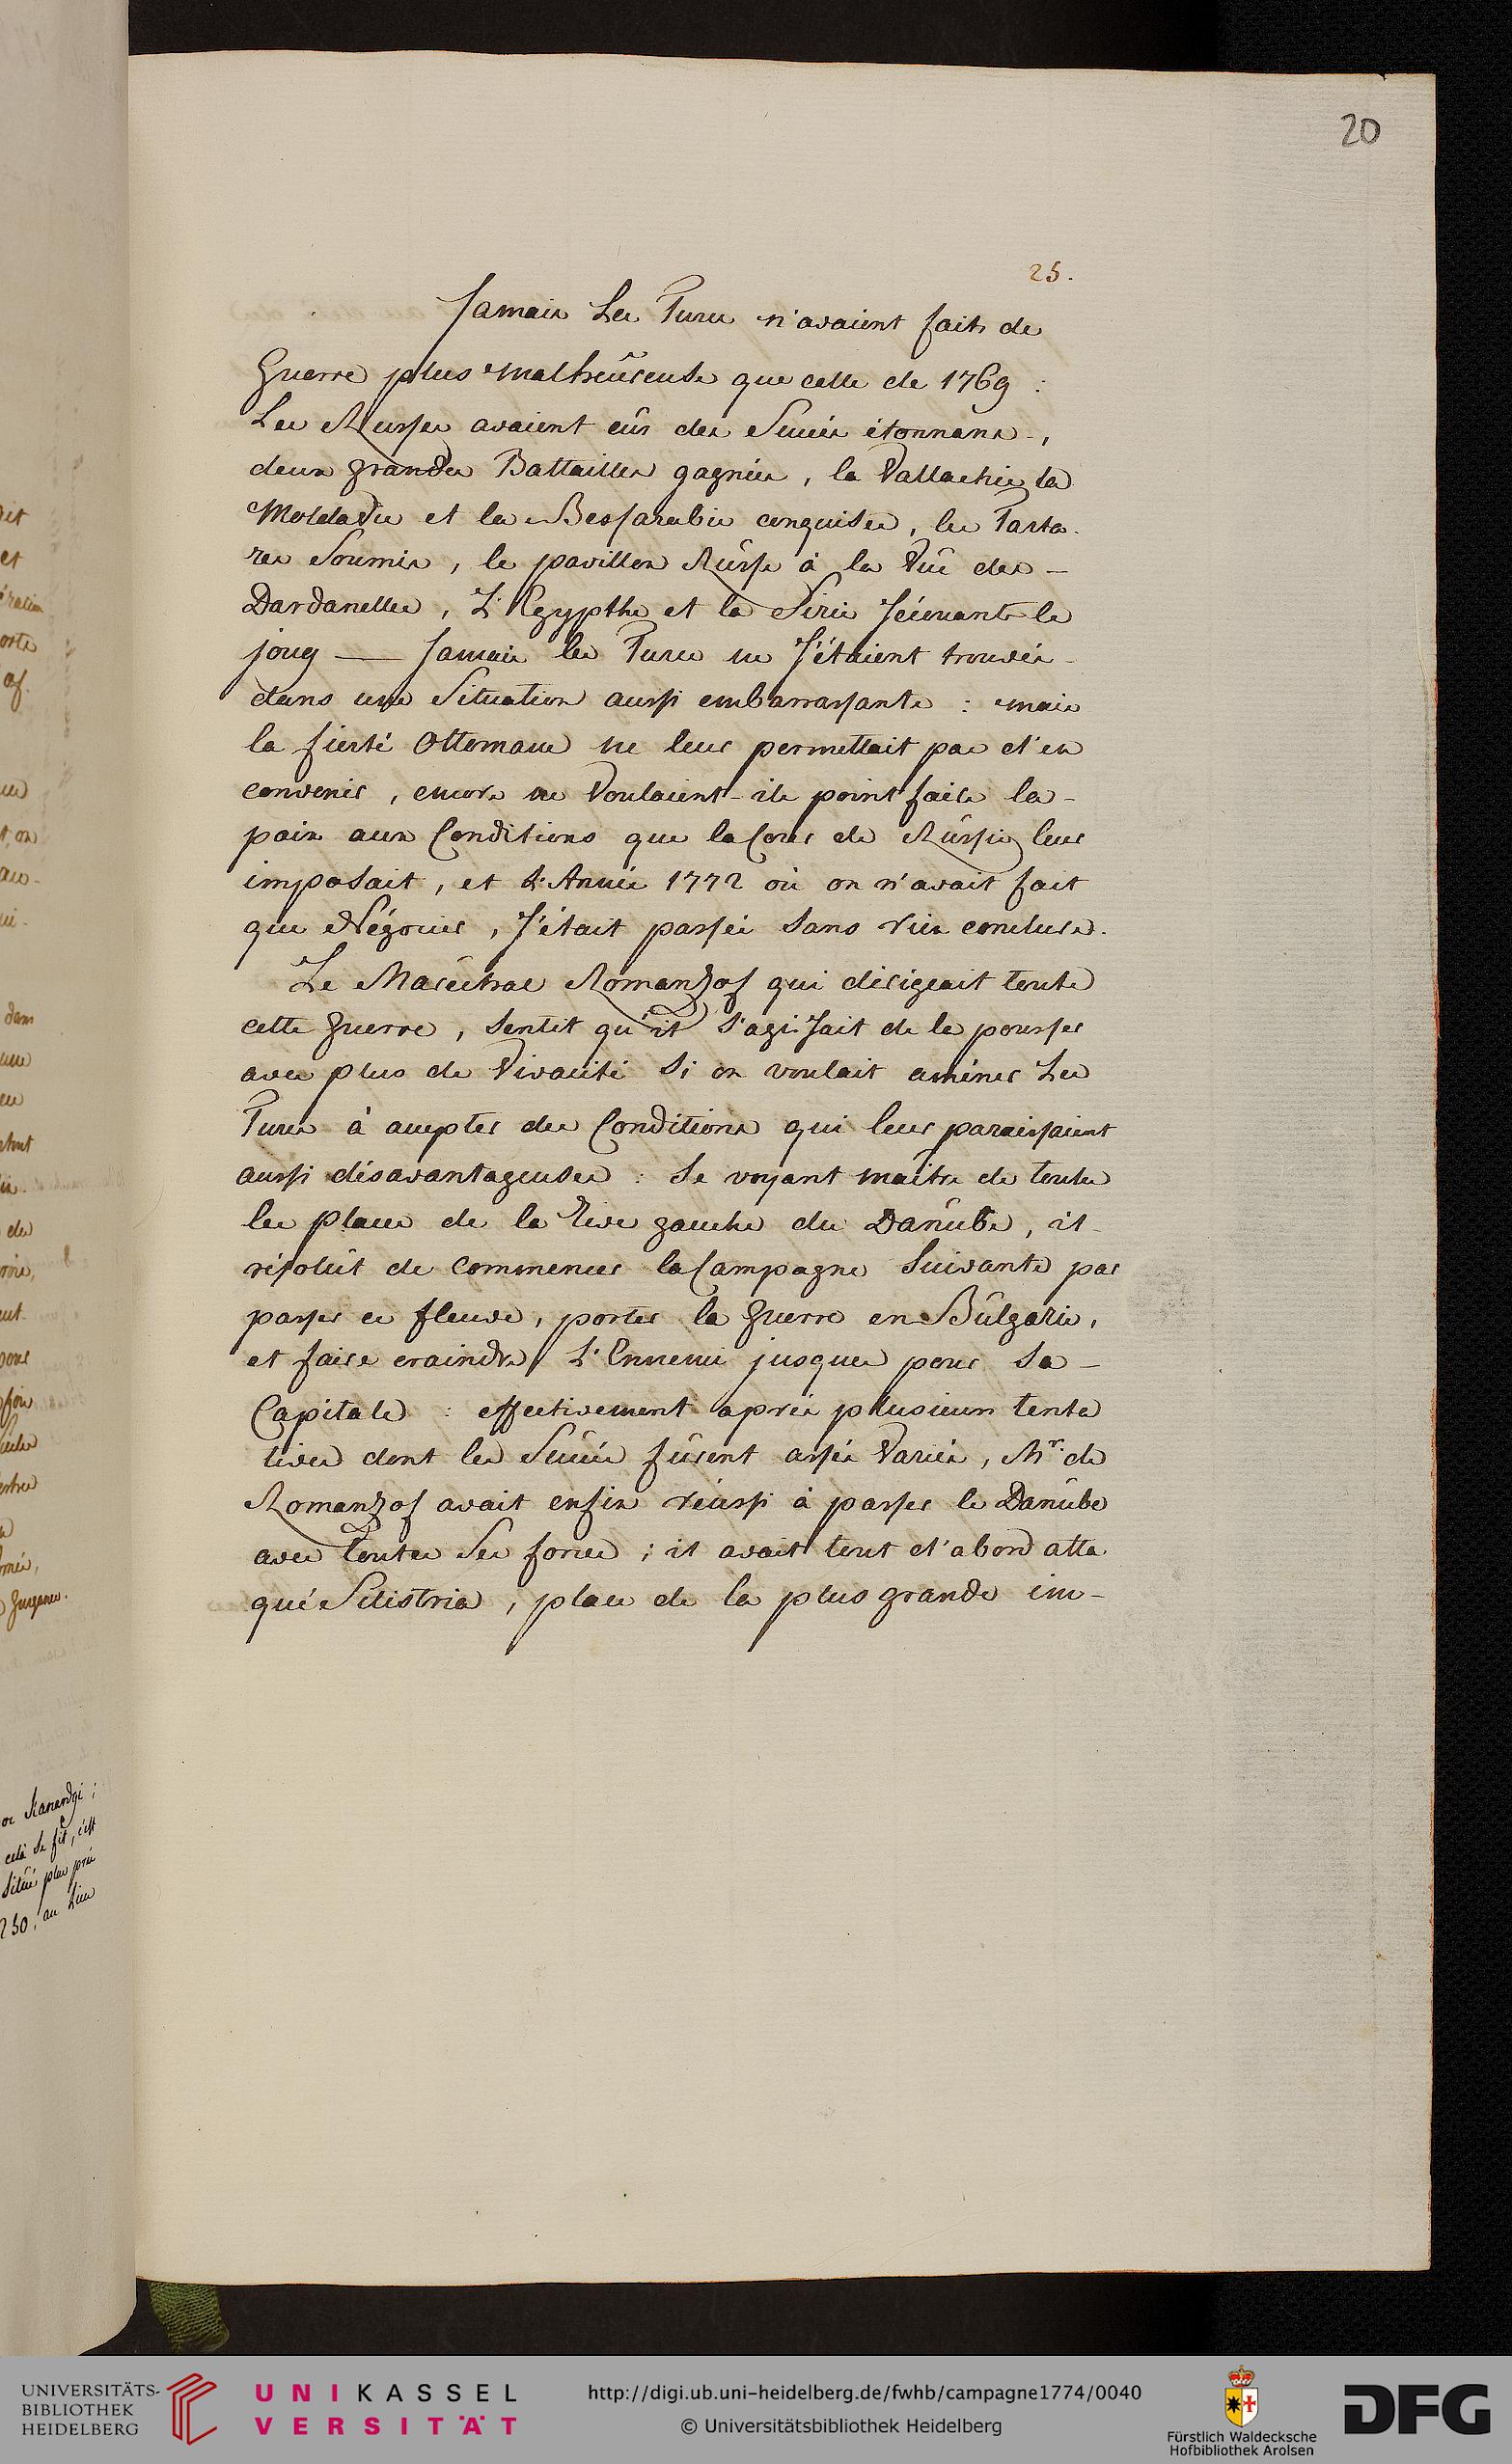 20
25.
Jamais Les Turcs n'avaient faits de
Guerre plus malheûreuse que celle de 1769 :
Les Russes avaient eûs des Succès étonnans -,
deux grandes Battailles gagnées, la Vallachie la
Moldavie et la Bessarabie conquises, les Tarta-
res Soumis, le pavillon Rûsse à la Vûe des -
Dardanelles, L'Egypthe et la Sirie Sécouants le
joug — Jamais les Turcs ne S'étaient trouvés -
dans une Situation aussi embarrassante : mais
la fierté Ottomane ne leur permettait pas d'en
convenir, encore ne Voulaient-ils point faire la -
paix aux Conditions que la Cour de Rûssie leur
imposait, et L'Année 1772 où on n'avait fait
que Négocier, S'était passée sans rien conclure.
Le Maréchal Romanzof qui dirigeait toute
cette guerre, sentit qu'il s'agissait de la pousser
avec plus de Vivacité si on voulait améner Les
Turcs à accepter des Conditions qui leur paraissaient
aussi désavantageuses : se voyant maître de toutes
les places de la rive gauche du Danûbe, il -
résolût de commencer la Campagne Suivante par
passer ce fleuve, porter la guerre en Bûlgarie,
et faire craindre L'Ennemi jusques pour sa -
Capitale : effectivement après plusieurs tenta
tives dont les Succès fûrent assés Variés, Mr. de
Romanzof avait enfin réussi à passer le Danûbe
avec toutes Ses forces ; il avait tout d'abord atta
qué Silistria, place de la plus grande im-
or Kanardgi ;
cela se fit, c'est
Situé plus près
250. au Lieu
UNIVERSITÄTS-
BIBLIOTHEK
HEIDELBERG
UNIKASSEL
VERSITÄT
http://digi.ub.uni-heidelberg.de/fwhb/campagne1774/0040
© Universitätsbibliothek Heidelberg
Fürstlich Waldecksche
Hofbibliothek Arolsen
DFG